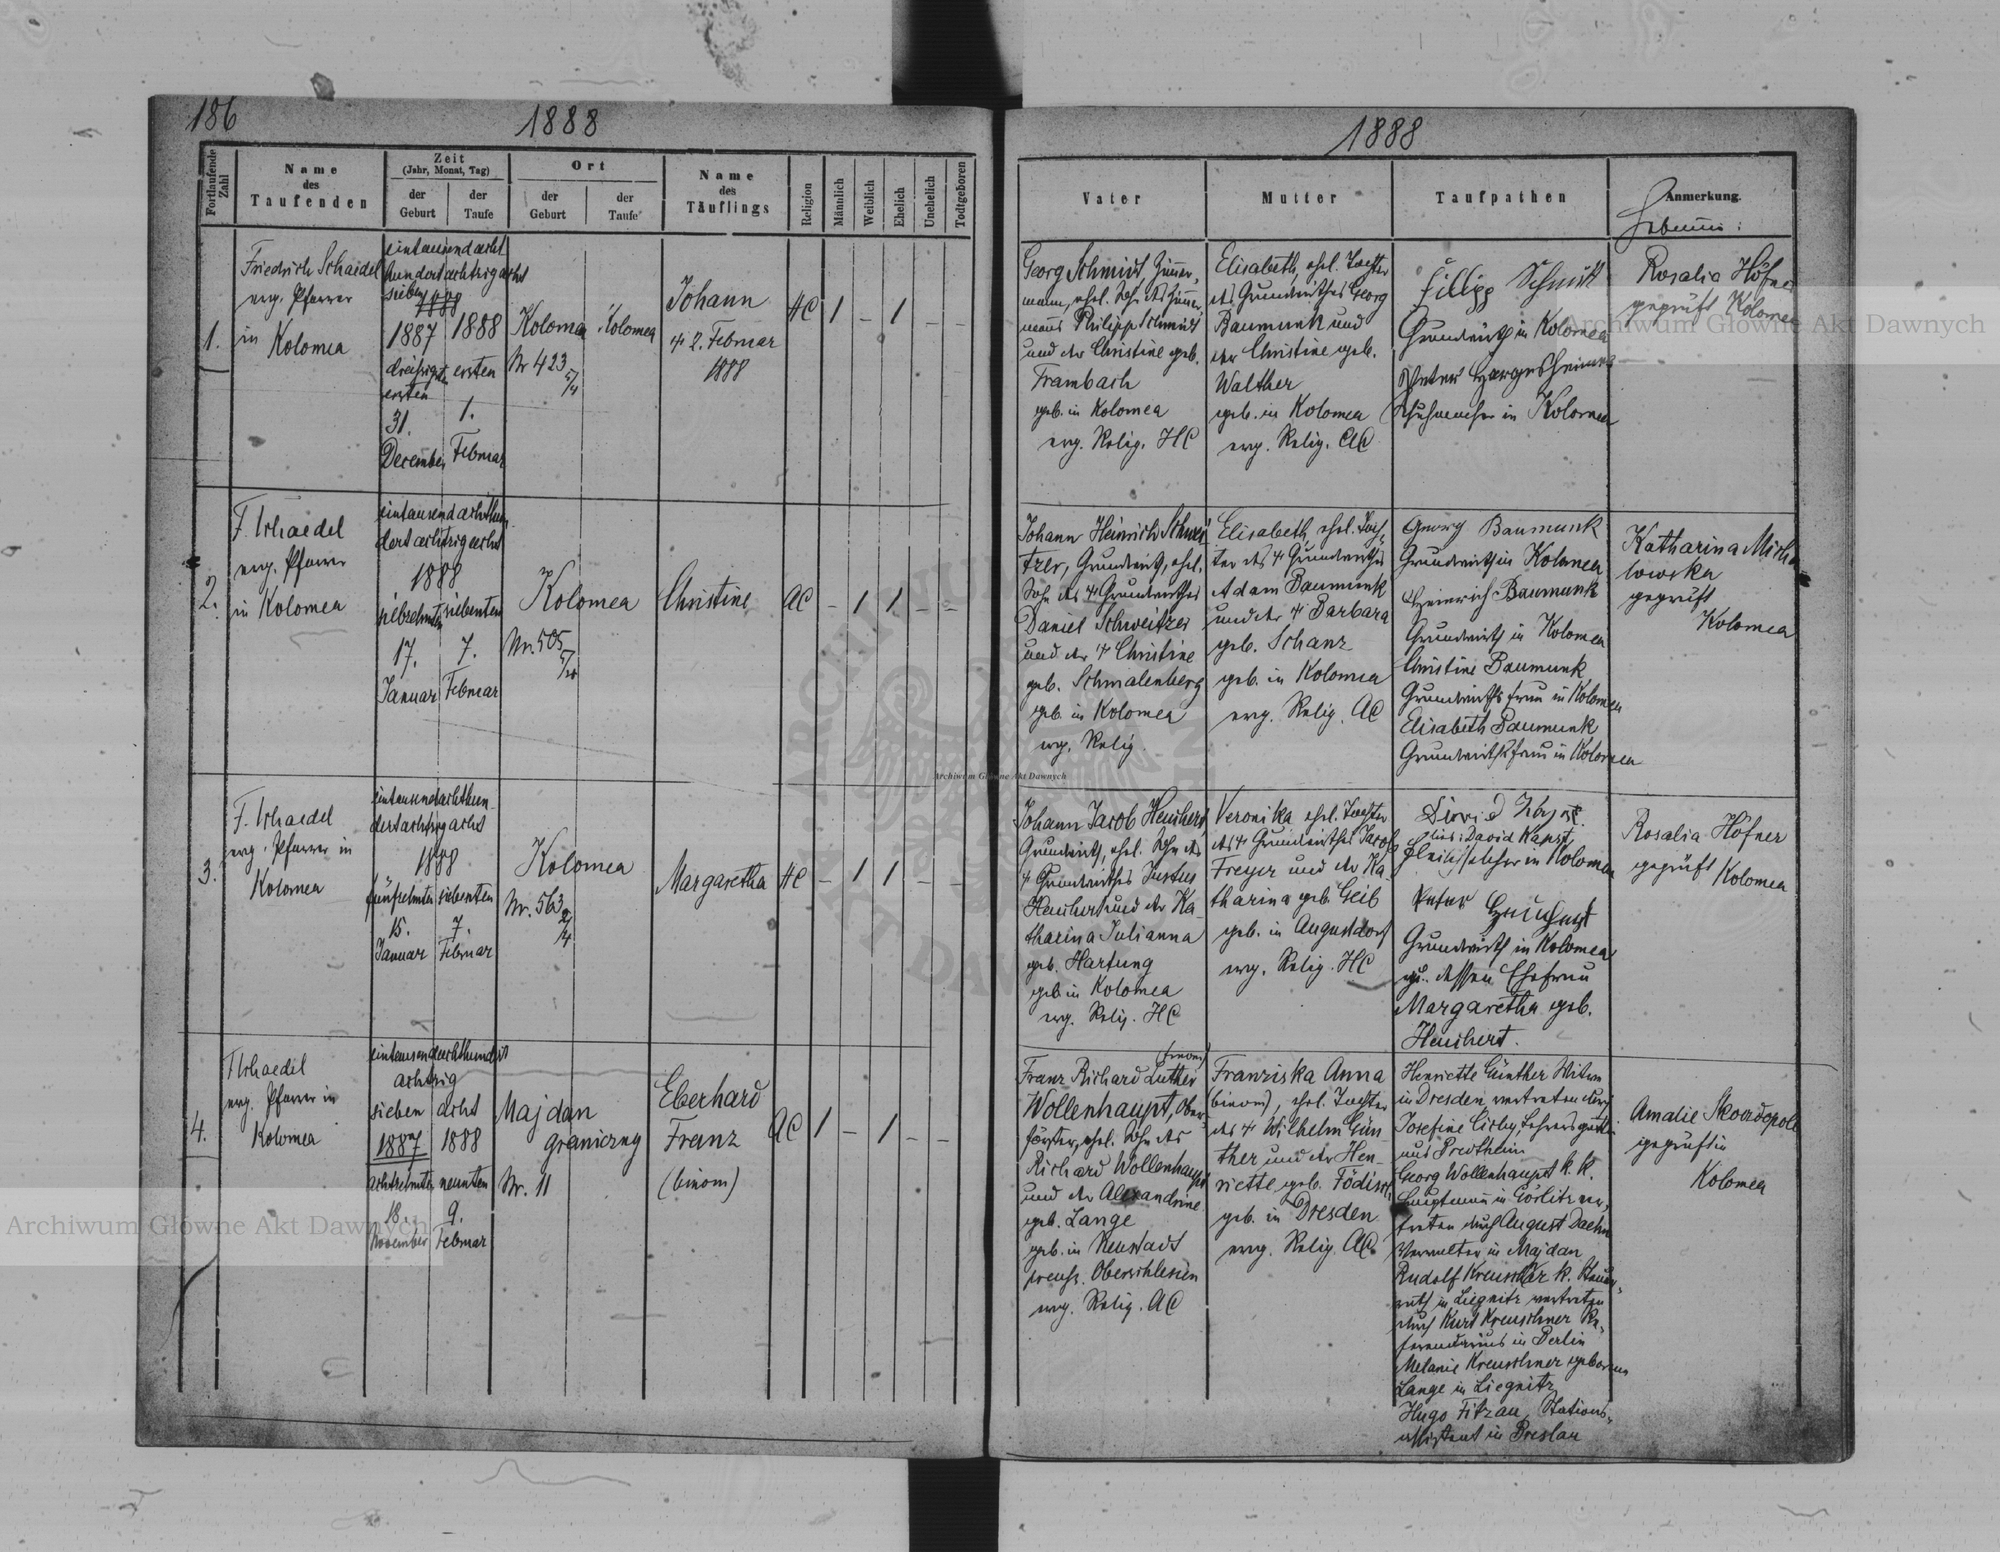 186
1888
Fortlaufende Zahl
Name
des
Taufenden
Zeit
(Jahr, Monat, Tag)
der Geburt
der Taufe
Ort
der Geburt
der Taufe
Name
des
Täuflings
Religion
Männlich
Weiblich
Ehelich
Unehelich
Todtgeboren
1.
Friedrich Schaedel
evg. Pfarrer
in
Kolomea
eintausendacht
hundertachtzigacht
sieben
1888
1887
1888
dreißigsten
ersten
ersten
31.
1.
December
Februar
Kolomea
Nr 423
Kolomea
Johann
2. Februar
1888
HC
1
–
1
–
–
2.
F. Schaedel
evg. Pfarrer
in Kolomea
eintausendachthun
dertachtzigacht
1888
siebzehnten
siebenten
17.
7.
Januar
Februar
Kolomea
Nr. 505
Christine
AC
–
1
1
–
–
3.
F. Schaedel
evg. Pfarrer in
Kolomea
eintausendachthun
dertachtzigacht
1888
fünfzehnten
siebenten
15.
7.
Januar
Februar
Kolomea
Nr. 563
Margaretha
HC
–
1
1
–
–
4.
F Schaedel
evg. Pfarrer in
Kolomea
eintausendachthundert
achtzig
sieben
acht
1887
1888
achtzehnten
neunten
18.
9.
November
Februar
Majdan
graniczny
Nr. 11
Eberhard
Franz
(binom)
AC
1
–
1
–
–
1888
Vater
Mutter
Taufpathen
Anmerkung.
Georg Schmidt, Zimmer,
mann, ehel. Sohn des Zimmer,
manns Philipp Schmidt
und der Christine geb.
Trambach
geb. in Kolomea
evg. Relig. HC
Elisabeth, ehel. Tochter
des Grundwirthes Georg
Baumunk und
der Christine geb.
Walther
geb. in Kolomea
evg. Relig. AC
Filipp Schmitt
Grundwirth in Kolomea
Peter Hargesheimer
Schuhmacher in Kolomea
Rosalia Höfner
geprüft Kolomea
Johann Heinrich Schwei
tzer, Grundwirth, ehel.
Sohn des Grundwirthes
Daniel Schweitzer
und der Christine
geb. Schmalenberg
geb. in Kolomea
evg. Relig.
Elisabeth, ehel. Toch-
ter des Grundwirthes
Adam Baumunk
und der Barbara
geb. Schanz
geb. in Kolomea
evg. Relig. AC
Georg Baumunk
Grundwirth in Kolomea
Heinrich Baumunk
Grundwirth in Kolomea
Christine Baumunk
Grundwirths frau in Kolomea
Elisabeth Baumunk
Grundwirthsfrau in Kolomea
Katharina Micha
lowska
geprüft
Kolomea
Johann Jacob Heuchert
Grundwirth, ehel. Sohn des
Grundwirthes Justus
Heuchert und der Ka-
tharina Julianna
geb. Hartung
geb in Kolomea
evg. Relig. HC
Veronika ehel. Tochter
des Grundwirthes Jacob
Freyer und der Ka
tharina geb. Geib
geb. in Augustdorf
evg. Relig. HC
David Kapst
Fleischselcher in Kolomea
Peter Heuchert
Grundwirth in Kolomea
dessen Ehefrau
Margaretha geb.
Heuchert.
Rosalia Höfner
geprüft Kolomea
(trinom)
Franz Richard Luther
Wollenhaupt, Ober
förster, ehel. Sohn des
Richard Wollenhaupt
und der Alexandrine
geb. Lange
geb. in Neustadt
preuß. Oberschlesien
evg. Relig. AC
Franziska Anna
(binom), ehel. Tochter
des Wilhelm Gün-
ther und der Hen-
riette geb. Födisch
geb. in Dresden
evg. Relig. AC
Henriette Günther Witwe
in Dresden vertreten durch
Josefine
Georg Wollenhaupt k. k.
Hauptmann in Görlitz ver,
treten durch August Daehn
Verwalter in Majdan
Rudolf Kreuschner k.
rath in Liegnitz vertreten
durch Kurt Kreuschner Re,
ferendarius in Berlin
Melanie Kreuschner geborene
Lange in Liegnitz
Hugo Fitzau, Stations,
assistent in Breslau
Amalie Skomdepole
geprüft in
Kolomea
Archiwum Główne Akt Dawnych
Archiwum Główne Akt Dawnych
Archiwum Główne Akt Dawnych